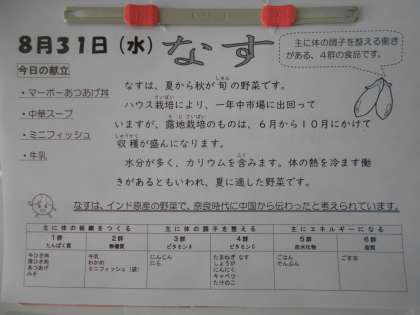 8月31日(水) なす
主に体の調子を整える働き
がある、4群の食品です。
今日の献立
・マーボーあつあげ丼
・中華スープ
・ミニフィッシュ
・牛乳
なすは、夏から秋が旬の野菜です。
ハウス栽培により、一年中市場に出回って
いますが、露地栽培のものは、6月から10月にかけて
収穫が盛んになります。
水分が多く、カリウムを含みます。体の熱を冷ます働
きがあるともいわれ、夏に適した野菜です。
なすは、インド原産の野菜で、奈良時代に中国から伝わったと考えられています。
主に体の組織をつくる 主に体の調子を整える 主にエネルギーになる
1群 2群 3群 4群 5群 6群
たんぱく質 無機質 ビタミンA ビタミンC 炭水化物 脂質
牛ひき肉 牛乳 にんじん たまねぎ なす ごはん ごま油
豚ひき肉 わかめ にら しょうが でんぷん
あつあげ ミニフィッシュ(袋) にんにく
みそ キャベツ
たけのこ